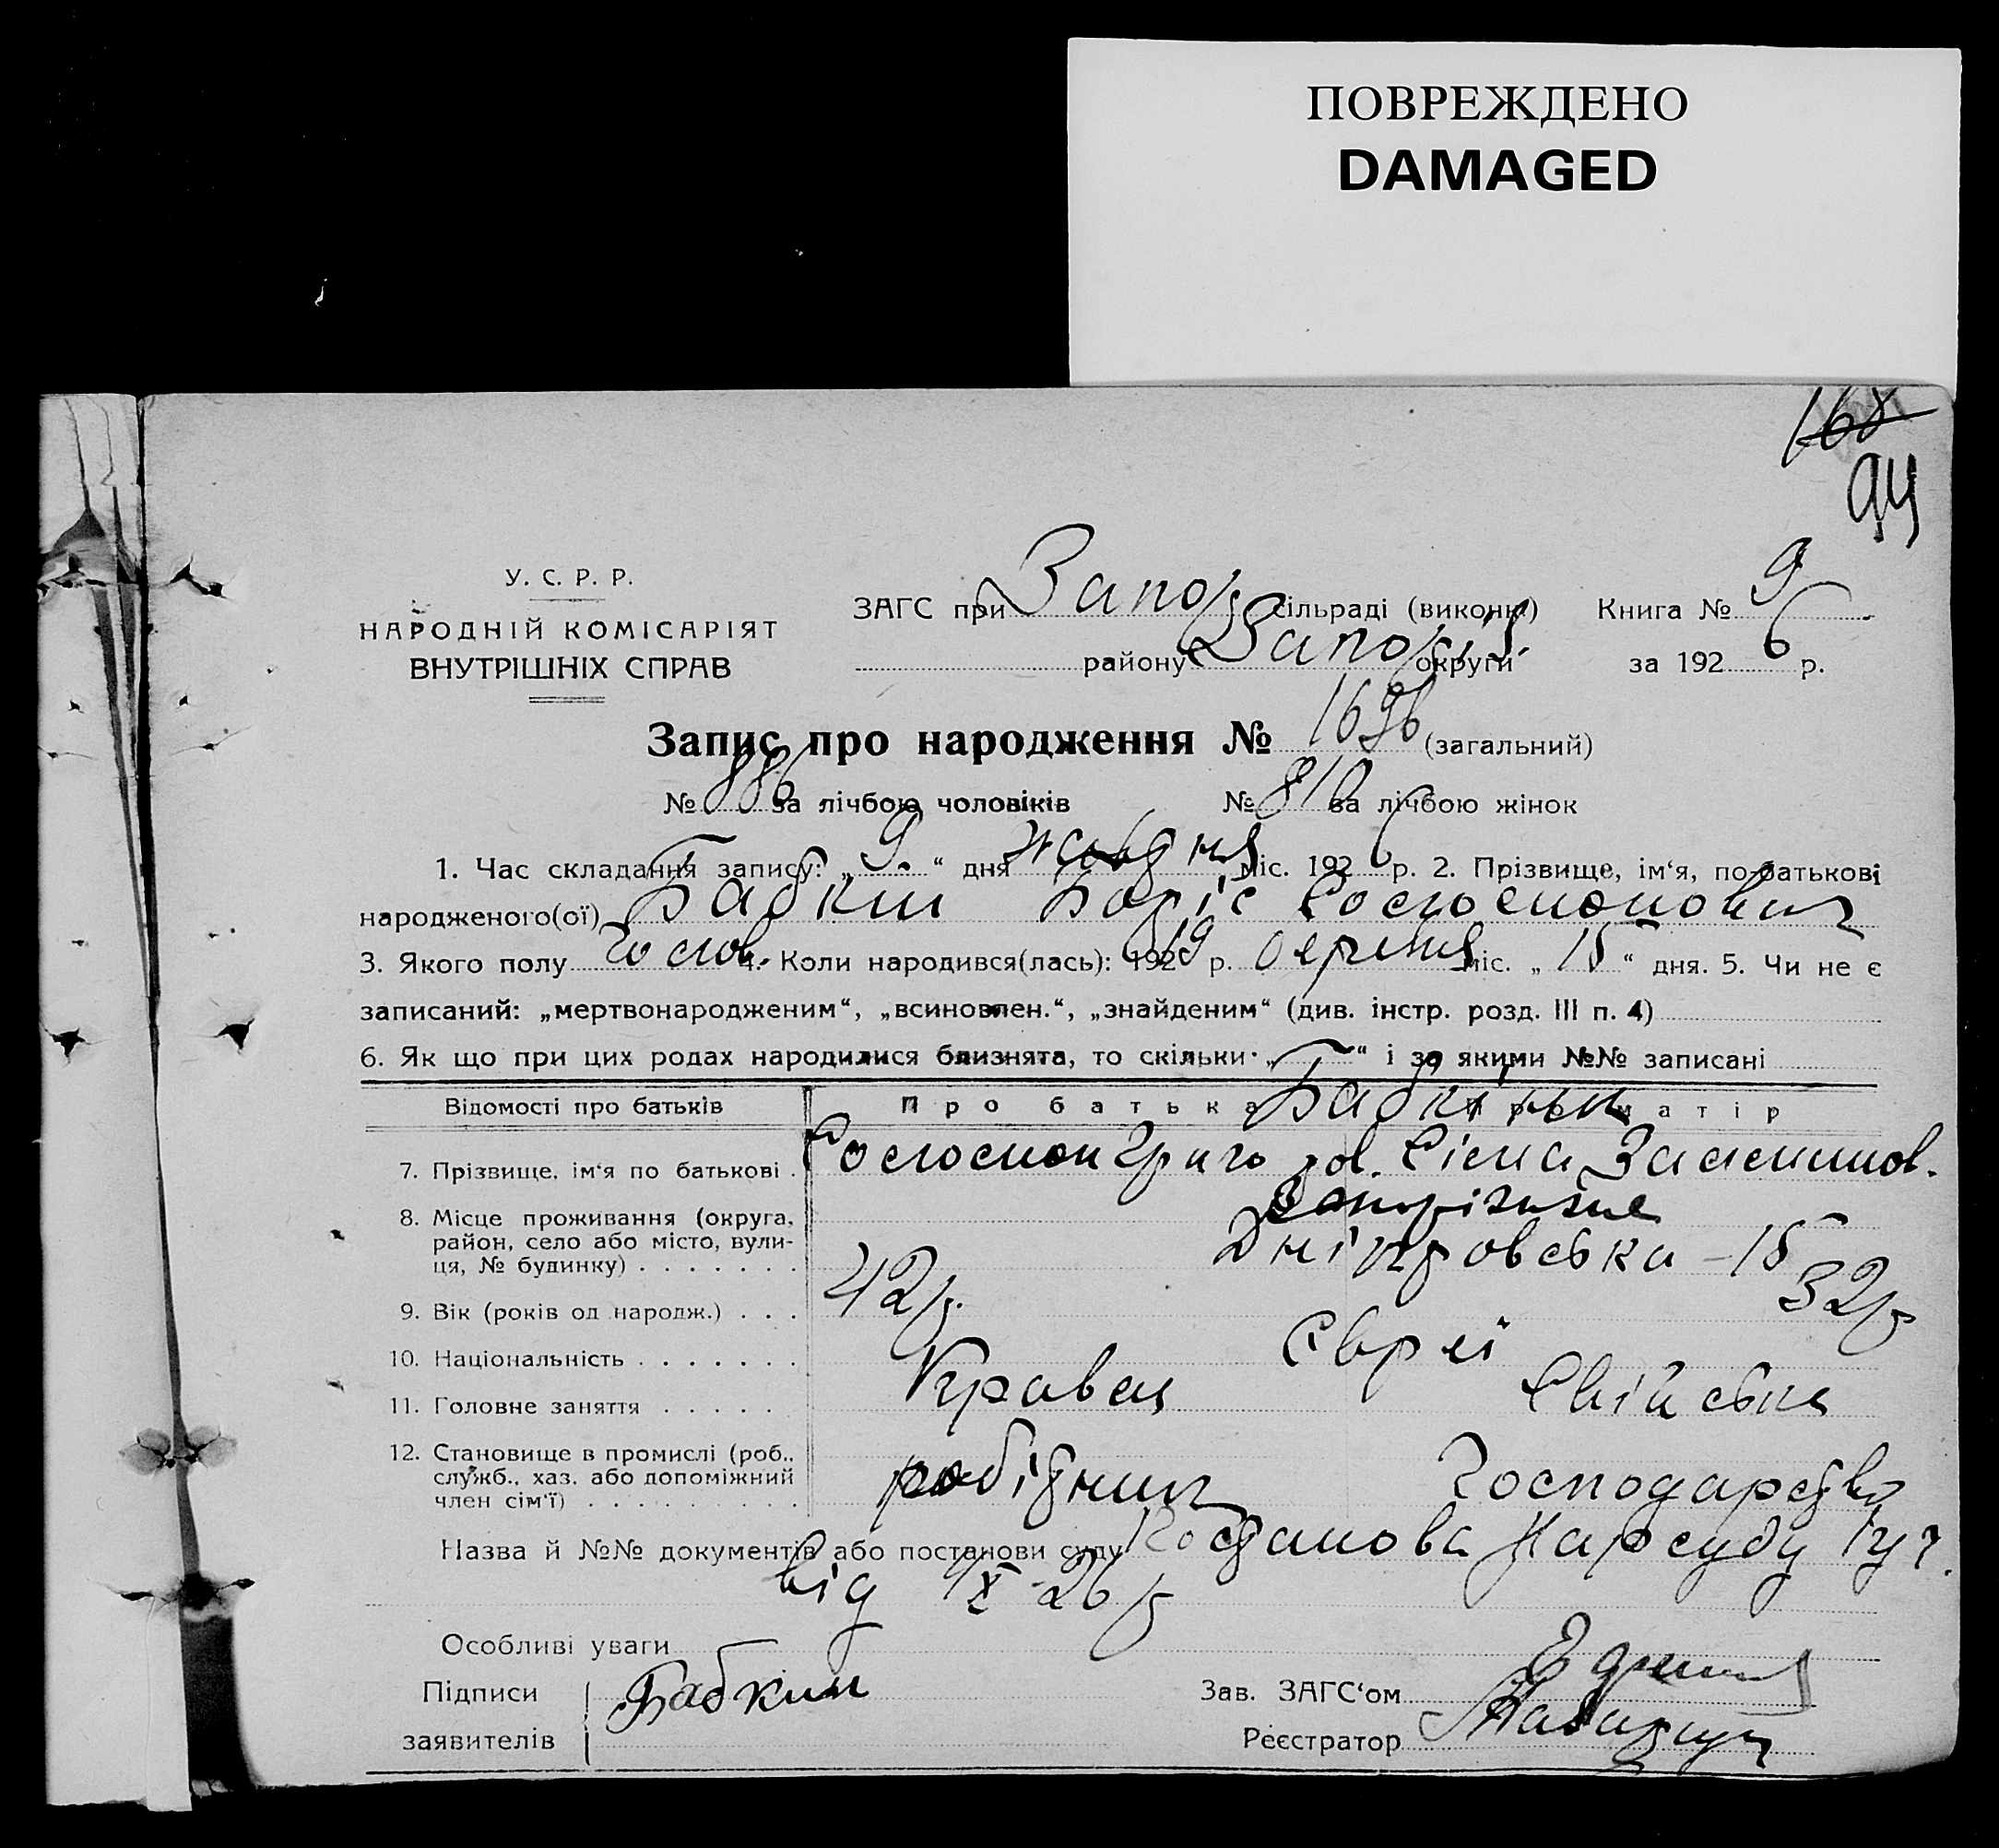 ПОВРЕЖДЕНО
DAMAGED
168
94
У. С. Р. Р.
НАРОДНІЙ КОМІСАРІЯТ
ВНУТРІШНІХ СПРАВ
ЗАГС при Запор. сільраді (виконк.) Книга № 9
району Запор. округи за 1926 р.
Запис про народження № 1696 (загальний)
№ 886 за лічбою чоловіків № 810 за лічбою жінок
1. Час складання запису: „9“ дня жовтня міс. 1926 р. 2. Прізвище, ім‘я, по батькові
народженого(ої) Бабкин Боріс Соломонович
3. Якого полу чолов. 4. Коли народився(лась): 1919 р. серпня міс. „15“ дня. 5. Чи не є
записаний: „мертвонародженим“, „всиновлен.“, „знайденим“ (див. інстр. розд. III п. 4)
6. Як що при цих родах народилися близнята, то скільки „ “ і за якими №№ записані
Відомості про батьків Про батька Про матір
Бабкины
7. Прізвище, ім‘я по батькові . Соломон Григоров. Сіма
8. Місце проживання (округа, район, село або місто, вулиця, № будинку) . . . . . . . Запоріжже
Дніпровська – 15
9. Вік (років од народж.) . . . 42 р. 32 р
10. Національність . . . . . . . Євреї
11. Головне заняття . . . . . Кравец Свійське
12. Становище в промислі (роб., служб., хаз. або допоміжний член сім‘ї) . . . . . . . . . . робідник Господарство
Назва й №№ документів або постанови суду Постанова Нарсуду 1 уч.
від X 26 р
Особливі уваги
Підписи заявителів Бабкин
Зав. ЗАГС‘ом
Реєстратор